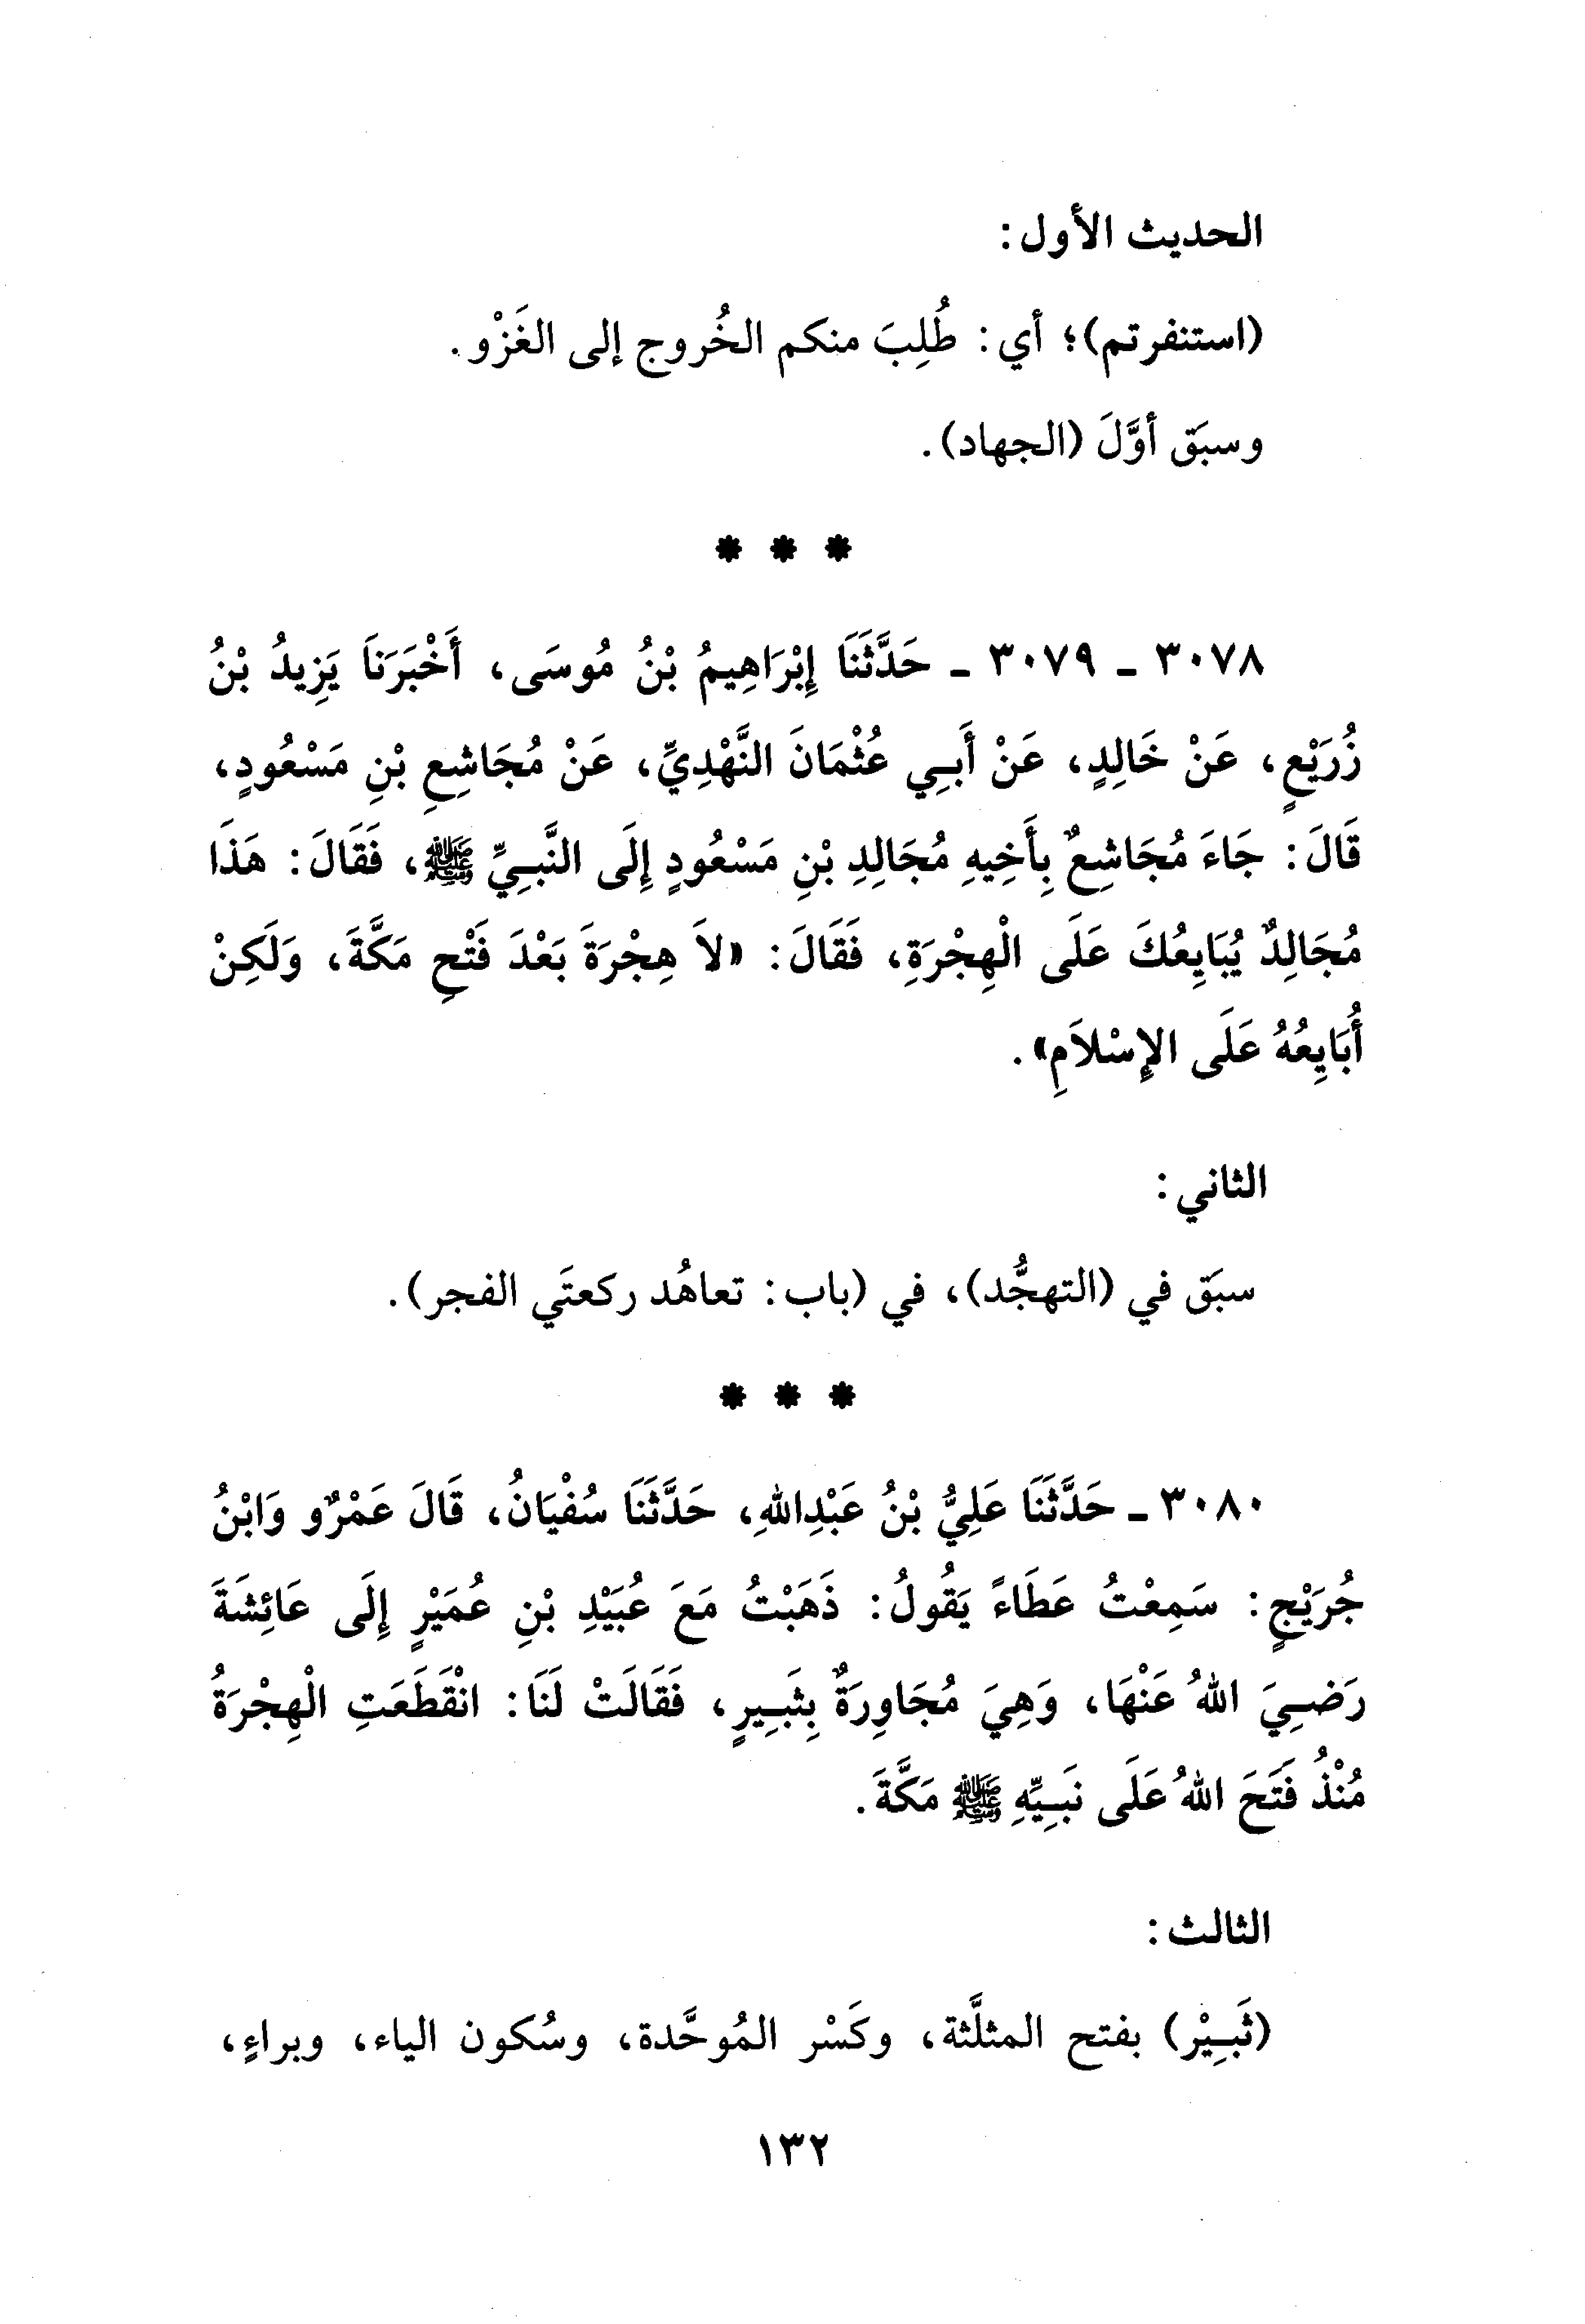 الحديث الأول:
(استنفرتم)؛ أي: طُلِبَ منكم الخُروج إلى الغَزْو.
وسبَق أوَّلَ (الجهاد).
* * *
٣٠٧٨ ـ ٣٠٧٩ ـ حَدَّثَنَا إِبْرَاهِيمُ بْنُ مُوسَى، أَخْبَرَنَا يَزِيدُ بْنُ
زُرَيْعٍ، عَنْ خَالِدٍ، عَنْ أَبِي عُثْمَانَ النَّهْدِيِّ، عَنْ مُجَاشِعِ بْنِ مَسْعُودٍ،
قَالَ: جَاءَ مُجَاشِعٌ بِأَخِيهِ مُجَالِدِ بْنِ مَسْعُودٍ إِلَى النَّبِيِّ ﷺ، فَقَالَ: هَذَا
مُجَالِدٌ يُبَايِعُكَ عَلَى الْهِجْرَةِ، فَقَالَ: «لاَ هِجْرَةَ بَعْدَ فَتْحِ مَكَّةَ، وَلَكِنْ
أُبَايِعُهُ عَلَى الإِسْلاَمِ».
الثاني:
سبَق في (التهجُّد)، في (باب: تعاهُد ركعتَي الفجر).
* * *
٣٠٨٠ ـ حَدَّثَنَا عَلِيُّ بْنُ عَبْدِاللهِ، حَدَّثَنَا سُفْيَانُ، قَالَ عَمْرٌو وَابْنُ
جُرَيْجٍ: سَمِعْتُ عَطَاءً يَقُولُ: ذَهَبْتُ مَعَ عُبَيْدِ بْنِ عُمَيْرٍ إِلَى عَائِشَةَ
رَضِيَ اللهُ عَنْهَا، وَهِيَ مُجَاوِرَةٌ بِثَبِيرٍ، فَقَالَتْ لَنَا: انْقَطَعَتِ الْهِجْرَةُ
مُنْذُ فَتَحَ اللهُ عَلَى نَبِيِّهِ ﷺ مَكَّةَ.
الثالث:
(ثَبِيْر) بفتح المثلَّثة، وكَسْر المُوحَّدة، وسُكون الياء، وبراءٍ،
١٣٢